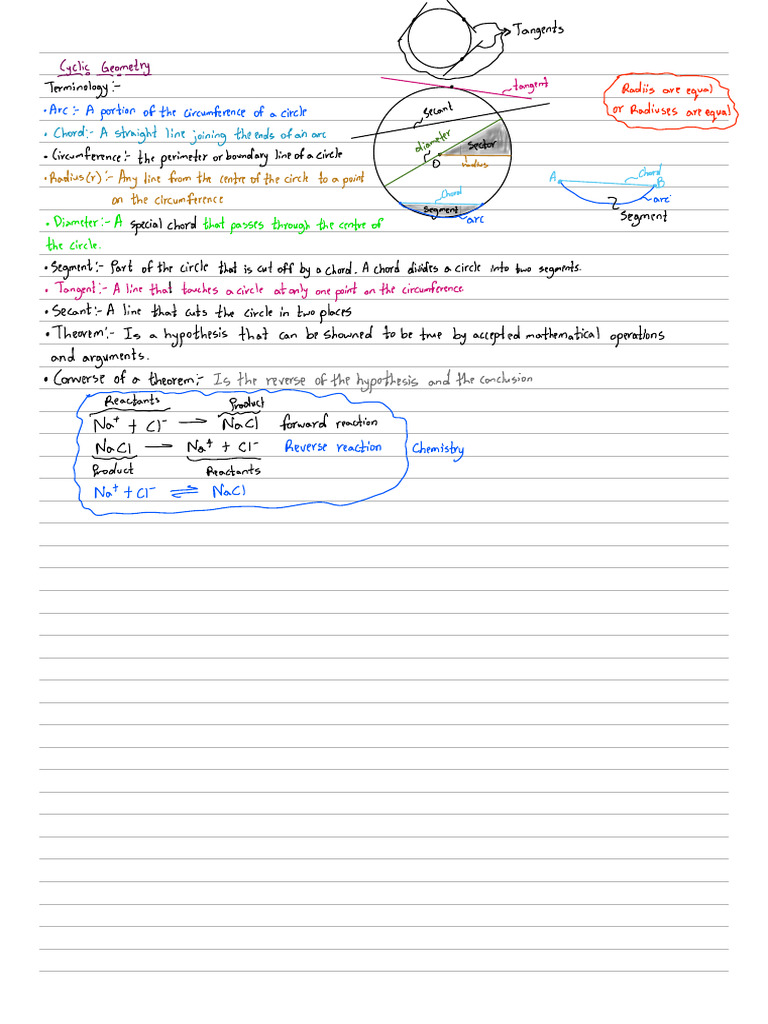 Tangents
Cyclic Geometry
Terminology:-
• Arc:- A portion of the circumference of a circle
• Chord:- A straight line joining the ends of an arc
• Circumference:- the perimeter or boundary line of a circle
• Radius(r):- Any line from the centre of the circle to a point
on the circumference
• Diameter:- A special chord that passes through the centre of
the circle.
• Segment:- Part of the circle that is cut off by a chord. A chord divides a circle into two segments.
• Tangent:- A line that touches a circle at only one point on the circumference.
• Secant:- A line that cuts the circle in two places
• Theorem:- Is a hypothesis that can be showned to be true by accepted mathematical operations
and arguments.
• Converse of a theorem:- Is the reverse of the hypothesis and the conclusion
tangent
Secant
diameter
Sector
O
radius
Chord
Segment
arc
Radiis are equal
or Radiuses are equal
A
Chord
B
arc
Segment
Reactants Product
Na⁺ + Cl⁻ → NaCl forward reaction
NaCl → Na⁺ + Cl⁻ Reverse reaction
Chemistry
Product Reactants
Na⁺ + Cl⁻ ⇌ NaCl